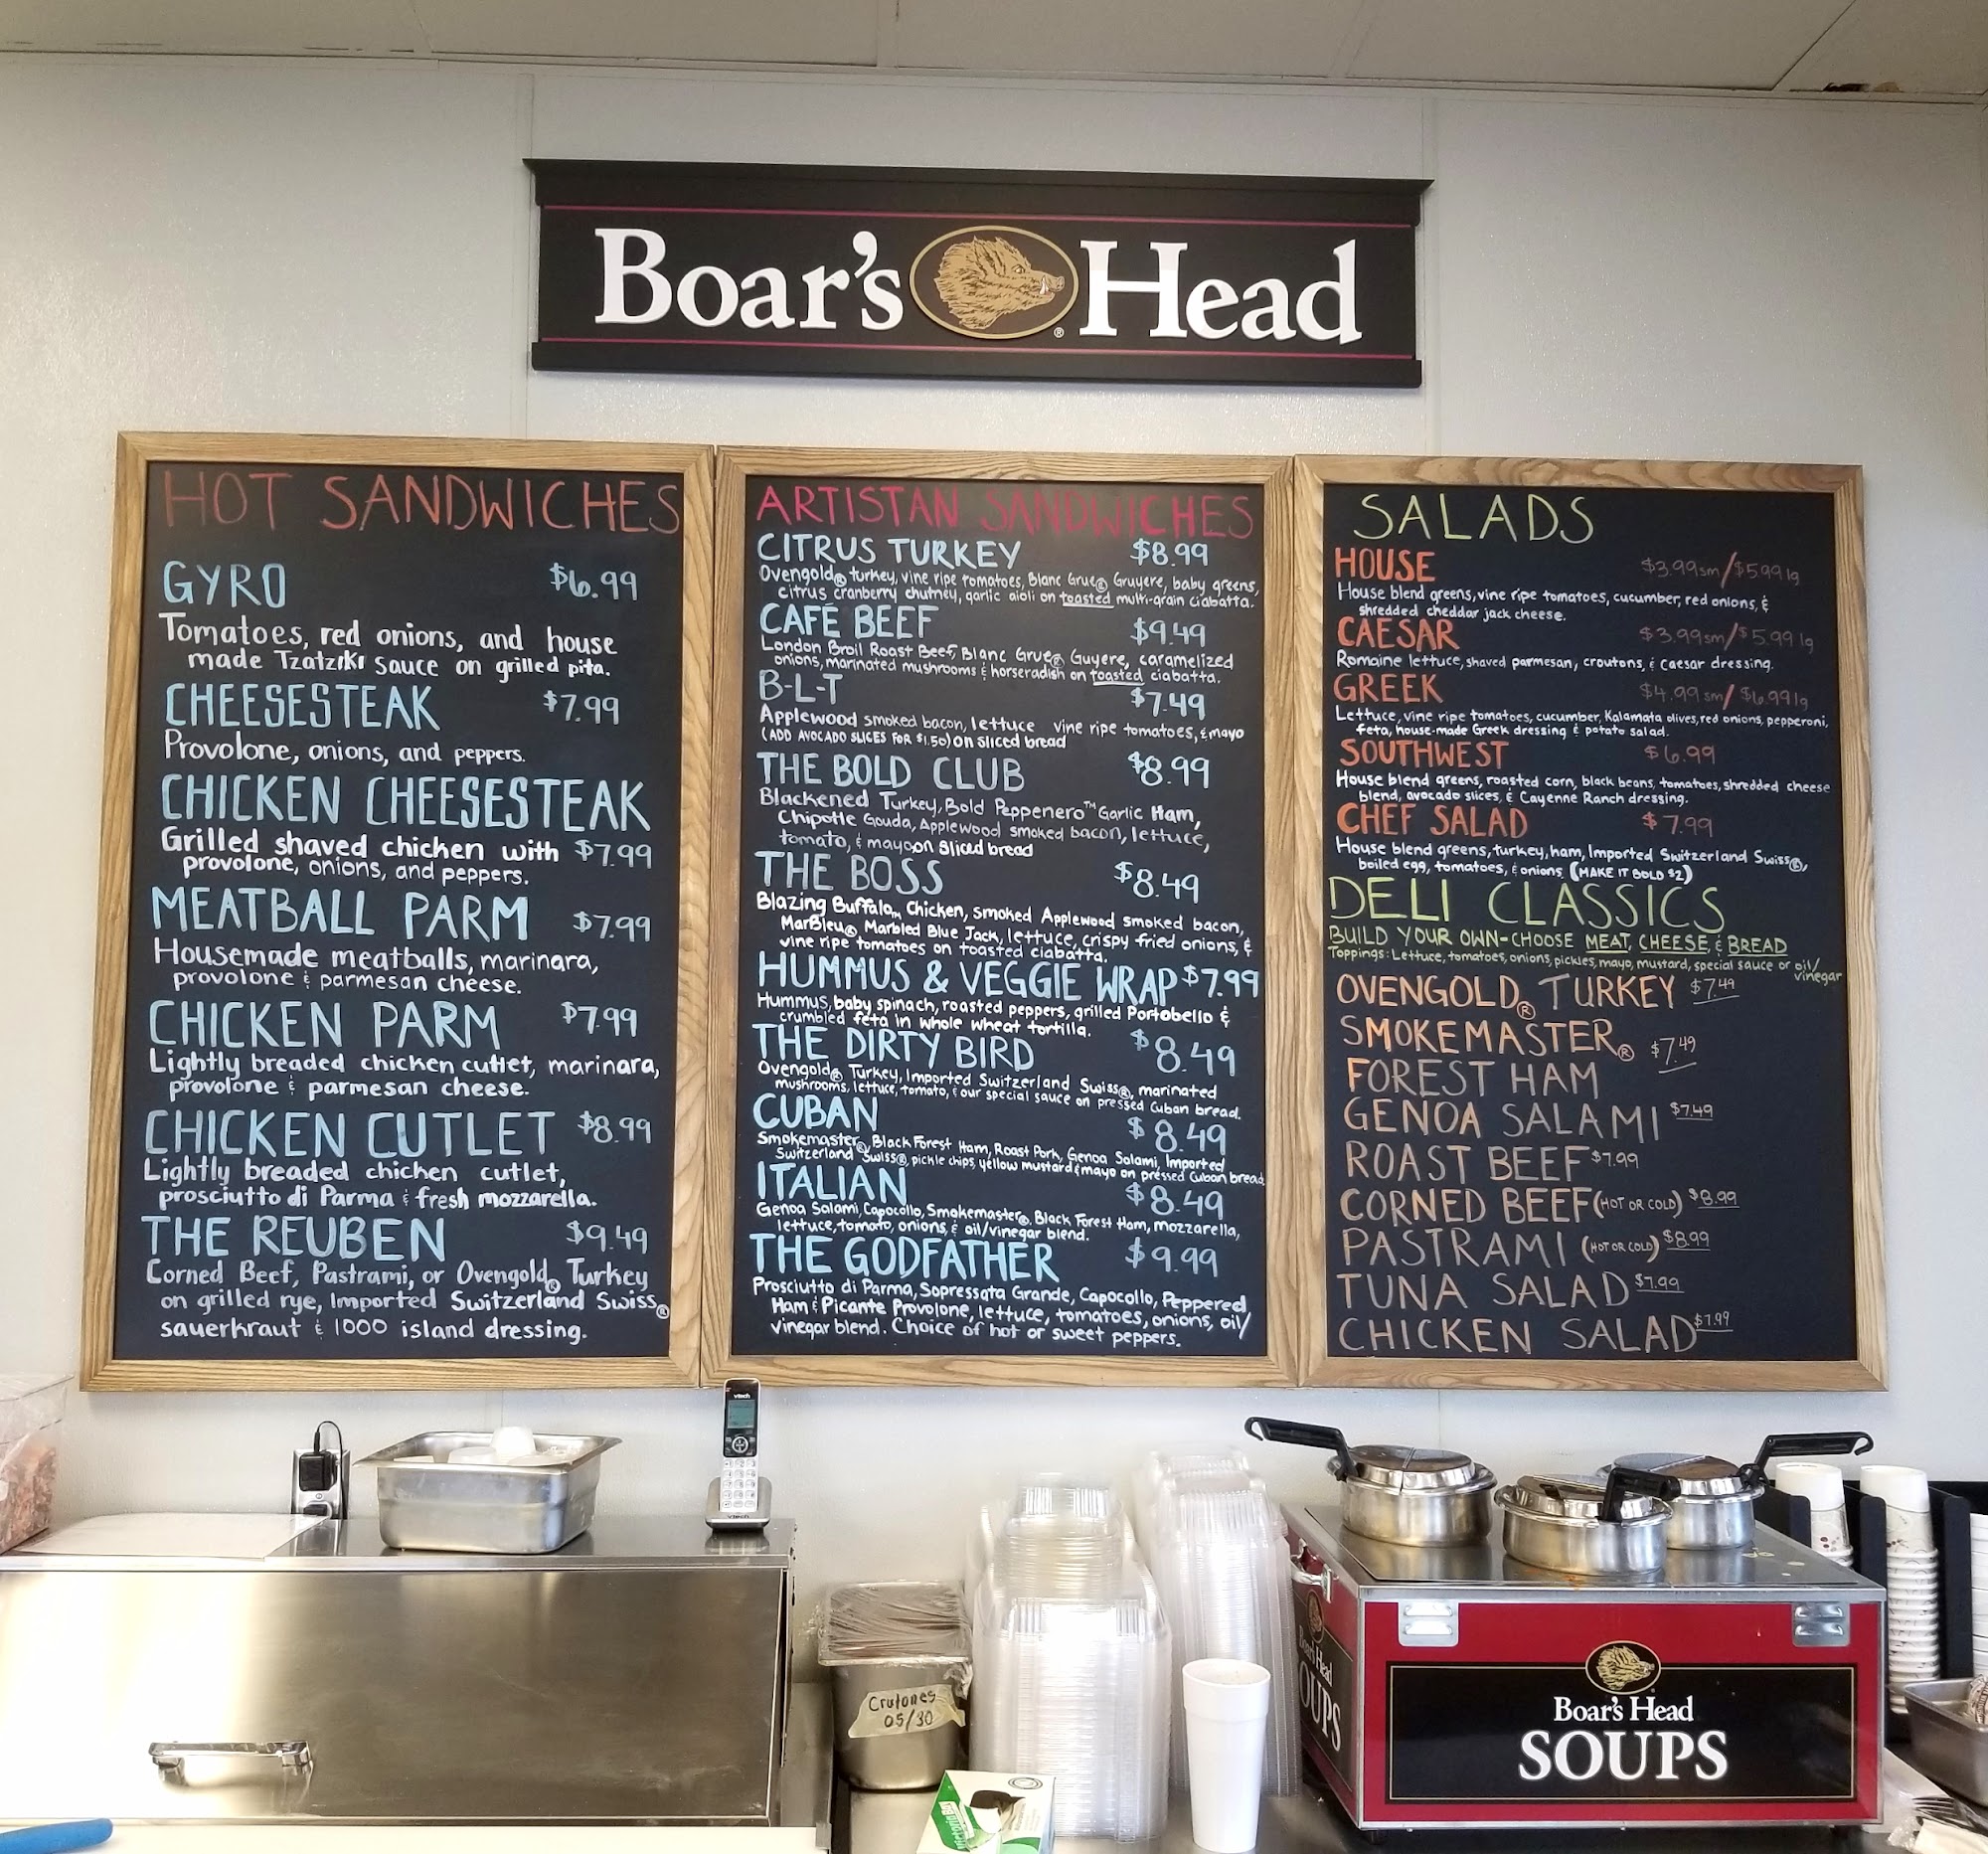 Boar's Head
HOT SANDWICHES
GYRO $6.99
Tomatoes, red onions, and house
made Tzatziki sauce on grilled pita.
CHEESESTEAK $7.99
Provolone, onions, and peppers.
CHICKEN CHEESESTEAK
Grilled shaved chicken with $7.99
provolone, onions, and peppers.
MEATBALL PARM $7.99
Housemade meatballs, marinara,
provolone & parmesan cheese.
CHICKEN PARM $7.99
Lightly breaded chicken cutlet, marinara,
provolone & parmesan cheese.
CHICKEN CUTLET $8.99
Lightly breaded chicken cutlet,
prosciutto di Parma & fresh mozzarella.
THE REUBEN $9.49
Corned Beef, Pastrami, or Ovengold® Turkey
on grilled rye, Imported Switzerland Swiss®
sauerkraut & 1000 island dressing.
ARTISTAN SANDWICHES
CITRUS TURKEY $8.99
Ovengold® turkey, vine ripe tomatoes, Blanc Grue® Gruyere, baby greens,
citrus cranberry chutney, garlic aioli on toasted multi-grain ciabatta.
CAFÉ BEEF $9.49
London Broil Roast Beef, Blanc Grue® Guyere, caramelized
onions, marinated mushrooms & horseradish on toasted ciabatta.
B-L-T $7.49
Applewood smoked bacon, lettuce vine ripe tomatoes, & mayo
(ADD AVOCADO SLICES FOR $1.50) on sliced bread
THE BOLD CLUB $8.99
Blackened Turkey, Bold Peppenero™ Garlic Ham,
Chipotle Gouda, Applewood smoked bacon, lettuce,
tomato, & mayo on sliced bread
THE BOSS $8.49
Blazing Buffalo™ Chicken, smoked Applewood smoked bacon,
MarBleu® Marbled Blue Jack, lettuce, crispy fried onions, &
vine ripe tomatoes on toasted ciabatta.
HUMMUS & VEGGIE WRAP $7.99
Hummus, baby spinach, roasted peppers, grilled Portobello &
crumbled feta in whole wheat tortilla.
THE DIRTY BIRD $8.49
Ovengold® Turkey, Imported Switzerland Swiss®, marinated
mushrooms, lettuce, tomato, & our special sauce on pressed Cuban bread.
CUBAN $8.49
Smokemaster® Black Forest Ham, Roast Pork, Genoa Salami, Imported
Switzerland Swiss®, pickle chips, yellow mustard & mayo on pressed Cuban bread.
ITALIAN $8.49
Genoa Salami, Capocollo, Smokemaster® Black Forest Ham, mozzarella,
lettuce, tomato, onions, & oil/vinegar blend.
THE GODFATHER $9.99
Prosciutto di Parma, Sopressata Grande, Capocollo, Peppered
Ham & Picante Provolone, lettuce, tomatoes, onions, oil/
vinegar blend. Choice of hot or sweet peppers.
SALADS
HOUSE $3.99sm/$5.99lg
House blend greens, vine ripe tomatoes, cucumber, red onions, &
shredded cheddar jack cheese.
CAESAR $3.99sm/$5.99lg
Romaine lettuce, shaved parmesan, croutons, & Caesar dressing.
GREEK $4.99sm/$6.99lg
Lettuce, vine ripe tomatoes, cucumber, Kalamata olives, red onions, pepperoni,
feta, house-made Greek dressing & potato salad.
SOUTHWEST $6.99
House blend greens, roasted corn, black beans, tomatoes, shredded cheese
blend, avocado slices, & Cayenne Ranch dressing.
CHEF SALAD $7.99
House blend greens, turkey, ham, Imported Switzerland Swiss®,
boiled egg, tomatoes, & onions. (MAKE IT BOLD $2)
DELI CLASSICS
BUILD YOUR OWN-CHOOSE MEAT, CHEESE, & BREAD
Toppings: Lettuce, tomatoes, onions, pickles, mayo, mustard, special sauce or oil/
vinegar
OVENGOLD® TURKEY $7.49
SMOKEMASTER® $7.49
FOREST HAM
GENOA SALAMI $7.49
ROAST BEEF $7.99
CORNED BEEF (HOT OR COLD) $8.99
PASTRAMI (HOT OR COLD) $8.99
TUNA SALAD $7.99
CHICKEN SALAD $7.99
vtech
vtech
Crutones
05/30
Boar's Head
SOUPS
Boar's Head
SOUPS